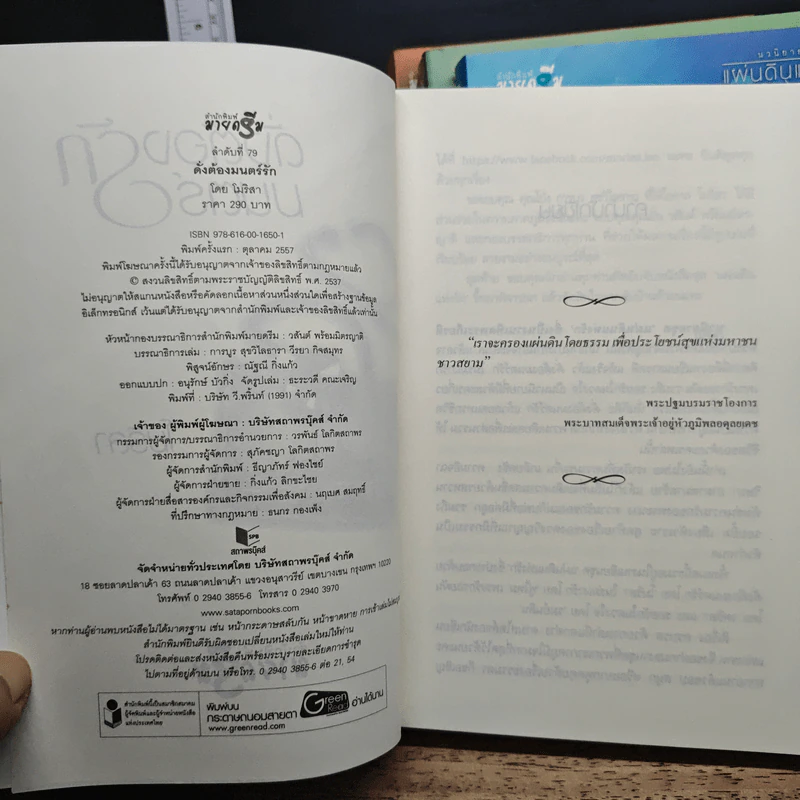 สำนักพิมพ์
มายดรีม
ลำดับที่ 79
ดั่งต้องมนตร์รัก
โดย โมริสา
ราคา 290 บาท
ISBN 978-616-00-1650-1
พิมพ์ครั้งแรก : ตุลาคม 2557
พิมพ์โฆษณาครั้งนี้ได้รับอนุญาตจากเจ้าของลิขสิทธิ์ตามกฎหมายแล้ว
© สงวนลิขสิทธิ์ตามพระราชบัญญัติลิขสิทธิ์ พ.ศ. 2537
ไม่อนุญาตให้สแกนหนังสือหรือคัดลอกเนื้อหาส่วนหนึ่งส่วนใดเพื่อสร้างฐานข้อมูล
อิเล็กทรอนิกส์ เว้นแต่ได้รับอนุญาตจากสำนักพิมพ์และเจ้าของลิขสิทธิ์แล้วเท่านั้น
หัวหน้ากองบรรณาธิการสำนักพิมพ์มายดรีม : วสันต์ พร้อมมิตรญาติ
บรรณาธิการเล่ม : การบูร สุขวิไลธารา วีรยา กิจสมุทร
พิสูจน์อักษร : ณัฐณี กิ่งแก้ว
ออกแบบปก : อนุรักษ์ บัวกิ่ง จัดรูปเล่ม : ธะระวดี คณะเจริญ
พิมพ์ที่ : บริษัท วี.พริ้นท์ (1991) จำกัด
เจ้าของ ผู้พิมพ์ผู้โฆษณา : บริษัทสถาพรบุ๊คส์ จำกัด
กรรมการผู้จัดการ/บรรณาธิการอำนวยการ : วรพันธ์ โลกิตสถาพร
รองกรรมการผู้จัดการ : สุภัคชญา โลกิตสถาพร
ผู้จัดการสำนักพิมพ์ : ธีญาภัทร์ ฟองไชย์
ผู้จัดการฝ่ายขาย : กิ่งแก้ว ลิกขะไชย
ผู้จัดการฝ่ายสื่อสารองค์กรและกิจกรรมเพื่อสังคม : นฤเบศ สมฤทธิ์
ที่ปรึกษาทางกฎหมาย : ธนกร กองเพ็ง
SPB
สถาพรบุ๊คส์
จัดจำหน่ายทั่วประเทศโดย บริษัทสถาพรบุ๊คส์ จำกัด
18 ซอยลาดปลาเค้า 63 ถนนลาดปลาเค้า แขวงอนุสาวรีย์ เขตบางเขน กรุงเทพฯ 10220
โทรศัพท์ 0 2940 3855-6 โทรสาร 0 2940 3970
www.satapornbooks.com
หากท่านผู้อ่านพบหนังสือไม่ได้มาตรฐาน เช่น หน้ากระดาษสลับกัน หน้าขาดหาย การเข้าเล่มไม่สมบูรณ์
สำนักพิมพ์ยินดีรับผิดชอบเปลี่ยนหนังสือเล่มใหม่ให้ท่าน
โปรดติดต่อและส่งหนังสือคืนพร้อมระบุรายละเอียดการชำรุด
ไปตามที่อยู่ด้านบน หรือโทร. 0 2940 3855-6 ต่อ 21, 54
สำนักพิมพ์นี้เป็นสมาชิกสมาคม
ผู้จัดพิมพ์และผู้จำหน่ายหนังสือ
แห่งประเทศไทย
พิมพ์บน
กระดาษถนอมสายตา
www.greenread.com
Green
Read
อ่านได้นาน
สำนักพิมพ์
มายดรีม
นวนิยาย
แผ่นดิน
“เราจะครองแผ่นดินโดยธรรม เพื่อประโยชน์สุขแห่งมหาชน
ชาวสยาม”
พระปฐมบรมราชโองการ
พระบาทสมเด็จพระเจ้าอยู่หัวภูมิพลอดุลยเดช